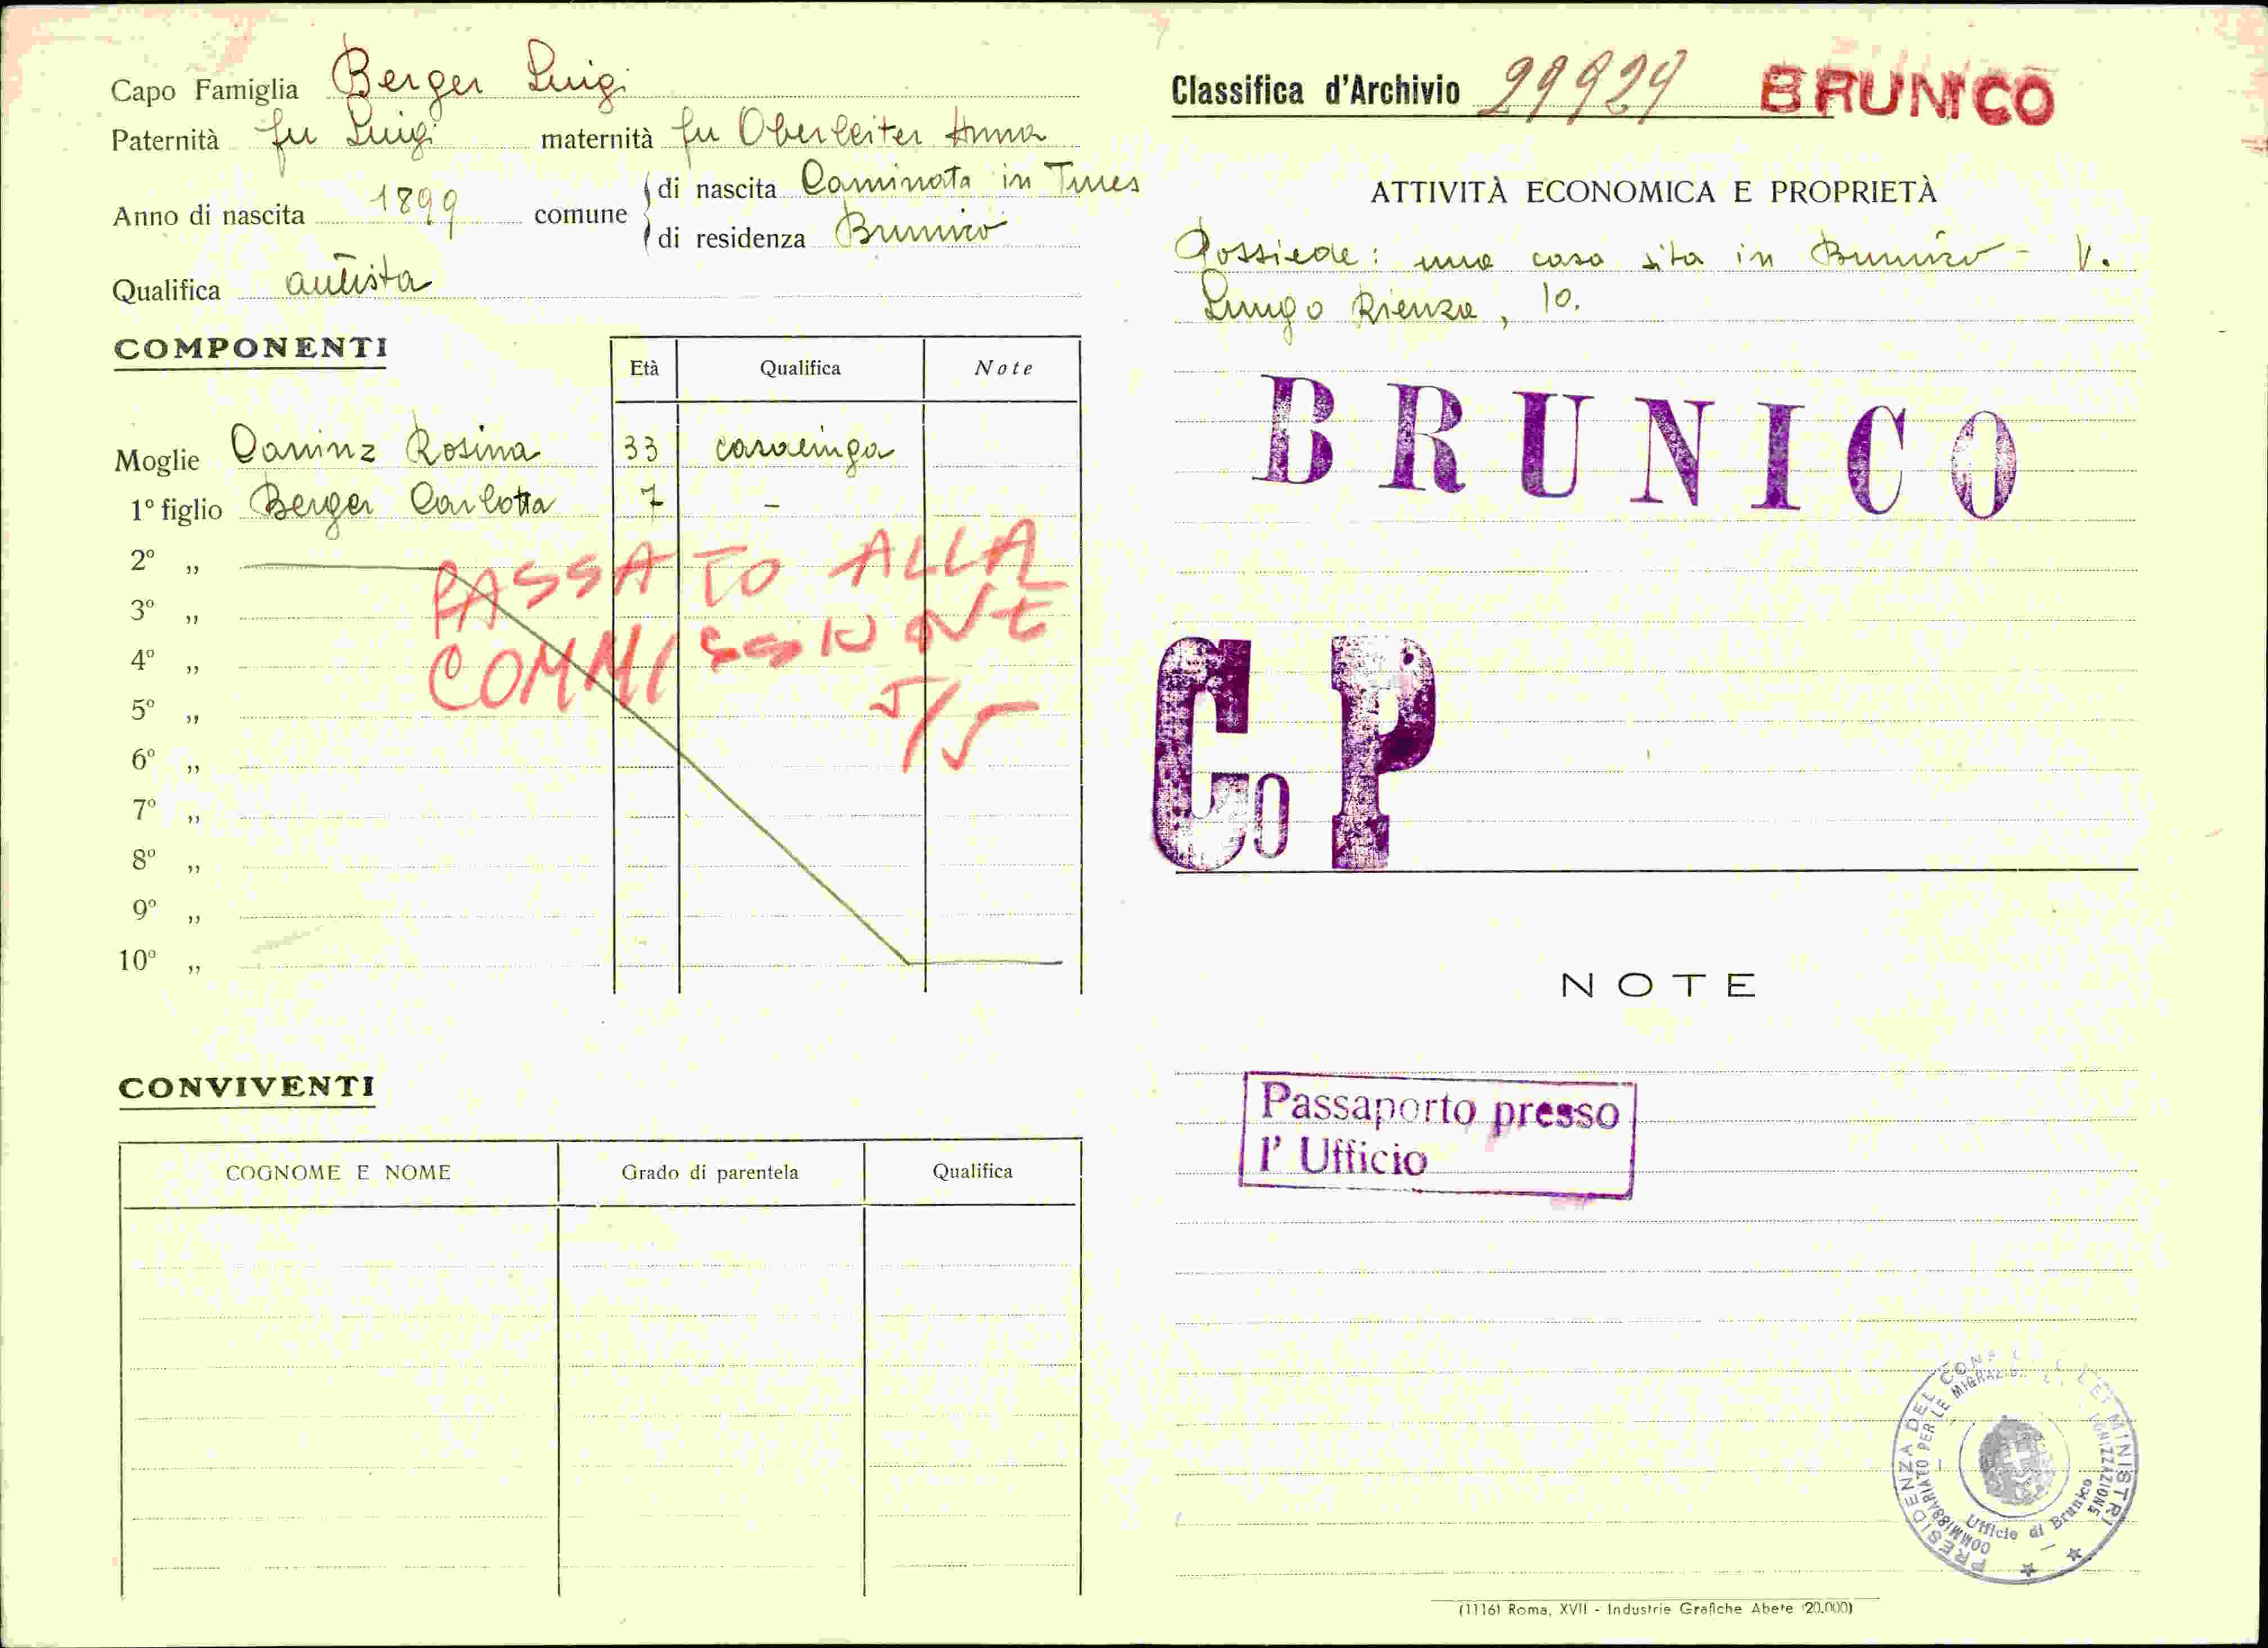 Capo Famiglia Berger Luigi
Paternità fu Luigi maternità fu Oberleiter Anna
Anno di nascita 1899 comune di nascita Caminata in Tures
di residenza Brunico
Qualifica autista
COMPONENTI
Età Qualifica Note
Moglie Caninz Rosina 33 casalinga
1º figlio Berger Carlotta 7 -
2º „
3º „
4º „
5º „
6º „
7º „
8º „
9º „
10º „
PASSATO ALLA
COMMISSIONE
5/5
CONVIVENTI
COGNOME E NOME Grado di parentela Qualifica
Classifica d'Archivio 29929 BRUNICO
ATTIVITÀ ECONOMICA E PROPRIETÀ
Possiede: una casa sita in Brunico - V.
Lungo Rienza, 10.
BRUNICO
Co P
NOTE
Passaporto presso
l' Ufficio
PRESIDENZA DEL MINISTRI
COMMISSARIATO PER LE MIGRAZIONI
Ufficio di Brunico
(1116) Roma, XVII - Industrie Grafiche Abete (20.000)